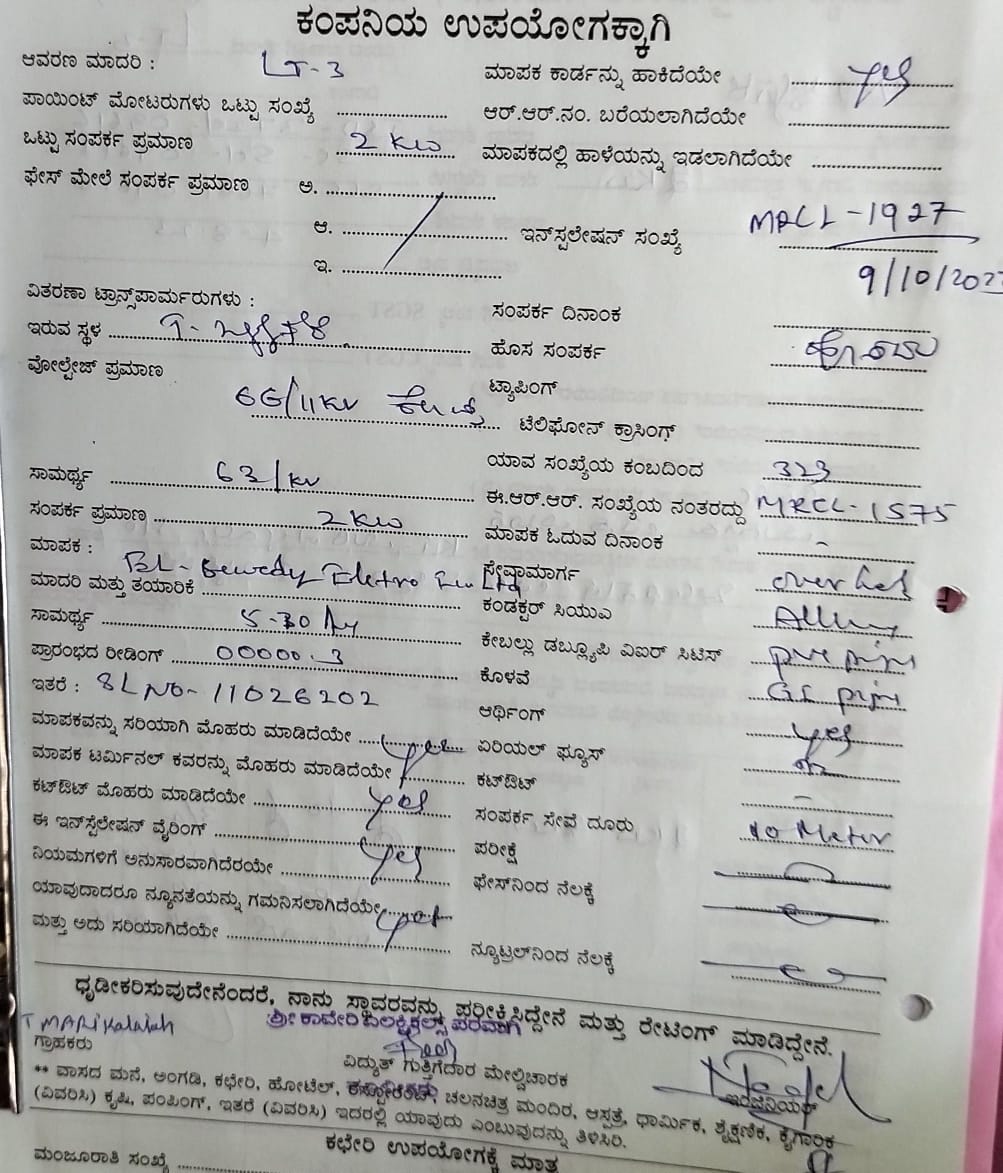 ಕಂಪನಿಯ ಉಪಯೋಗಕ್ಕಾಗಿ
ಆವರಣ ಮಾದರಿ : LT-3 ಮಾಪಕ ಕಾರ್ಡನ್ನು ಹಾಕಿದೆಯೇ yes
ಪಾಯಿಂಟ್ ಮೋಟರುಗಳು ಒಟ್ಟು ಸಂಖ್ಯೆ ಆರ್.ಆರ್.ನಂ. ಬರೆಯಲಾಗಿದೆಯೇ
ಒಟ್ಟು ಸಂಪರ್ಕ ಪ್ರಮಾಣ 2 KW ಮಾಪಕದಲ್ಲಿ ಹಾಳೆಯನ್ನು ಇಡಲಾಗಿದೆಯೇ
ಫೇಸ್ ಮೇಲೆ ಸಂಪರ್ಕ ಪ್ರಮಾಣ ಅ.
ಆ. ಇನ್‌ಸ್ಪಲೇಷನ್ ಸಂಖ್ಯೆ MRCL-1927
ಇ. 9/10/202
ವಿತರಣಾ ಟ್ರಾನ್ಸ್‌ಪಾರ್ಮರುಗಳು : ಸಂಪರ್ಕ ದಿನಾಂಕ
ಇರುವ ಸ್ಥಳ ಹೊಸ ಸಂಪರ್ಕ ಹೊಸದು
ವೋಲ್ಟೇಜ್ ಪ್ರಮಾಣ 66/11KV ಟ್ಯಾಪಿಂಗ್
ಟೆಲಿಫೋನ್ ಕ್ರಾಸಿಂಗ್
ಸಾಮರ್ಥ್ಯ 63/KV ಯಾವ ಸಂಖ್ಯೆಯ ಕಂಬದಿಂದ 323
ಸಂಪರ್ಕ ಪ್ರಮಾಣ 2KW ಈ.ಆರ್.ಆರ್. ಸಂಖ್ಯೆಯ ನಂತರದ್ದು MRCL-1575
ಮಾಪಕ : ಮಾಪಕ ಓದುವ ದಿನಾಂಕ -
ಮಾದರಿ ಮತ್ತು ತಯಾರಿಕೆ BL- Eletro Ltd ಸೇವಾಮಾರ್ಗ over
ಸಾಮರ್ಥ್ಯ 5-30 ಕಂಡಕ್ಟರ್ ಸಿಯುಎ
ಪ್ರಾರಂಭದ ರೀಡಿಂಗ್ 00000.3 ಕೇಬಲ್ಲು ಡಬ್ಲ್ಯೂಪಿ ವಿಐರ್ ಸಿಟಿಸ್ pvc
ಇತರೆ : SL NO- 11026202 ಕೊಳವೆ GI
ಮಾಪಕವನ್ನು ಸರಿಯಾಗಿ ಮೊಹರು ಮಾಡಿದೆಯೇ yes ಆರ್ಥಿಂಗ್ yes
ಮಾಪಕ ಟರ್ಮಿನಲ್ ಕವರನ್ನು ಮೊಹರು ಮಾಡಿದೆಯೇ ಏರಿಯಲ್ ಫ್ಯೂಸ್
ಕಟ್‌ಔಟ್ ಮೊಹರು ಮಾಡಿದೆಯೇ yes ಕಟ್‌ಔಟ್ -
ಈ ಇನ್‌ಸ್ಪೆಲೇಷನ್ ವೈರಿಂಗ್ ಸಂಪರ್ಕ ಸೇವೆ ದೂರು 10 Meter
ನಿಯಮಗಳಿಗೆ ಅನುಸಾರವಾಗಿದೆರಯೇ yes ಪರೀಕ್ಷೆ
ಯಾವುದಾದರೂ ನ್ಯೂನತೆಯನ್ನು ಗಮನಿಸಲಾಗಿದೆಯೇ yes ಫೇಸ್‌ನಿಂದ ನೆಲಕ್ಕೆ
ಮತ್ತು ಅದು ಸರಿಯಾಗಿದೆಯೇ ನ್ಯೂಟ್ರಲ್‌ನಿಂದ ನೆಲಕ್ಕೆ
ಧೃಡೀಕರಿಸುವುದೇನೆಂದರೆ, ನಾನು ಸ್ಥಾವರವನ್ನು ಪರೀಕ್ಷಿಸಿದ್ದೇನೆ ಮತ್ತು ರೇಟಿಂಗ್ ಮಾಡಿದ್ದೇನೆ.
T MARikalaiah ಶ್ರೀ ಕಾವೇರಿ ಎಲೆಕ್ಟ್ರಿಕಲ್ಸ್ ಪರವಾಗಿ
ಗ್ರಾಹಕರು ವಿದ್ಯುತ್ ಗುತ್ತಿಗೆದಾರ ಮೇಲ್ವಿಚಾರಕ ಇಂಜಿನಿಯರ್
** ವಾಸದ ಮನೆ, ಅಂಗಡಿ, ಕಛೇರಿ, ಹೋಟೆಲ್, ಚಲನಚಿತ್ರ ಮಂದಿರ, ಆಸ್ಪತ್ರೆ, ಧಾರ್ಮಿಕ, ಶೈಕ್ಷಣಿಕ, ಕೈಗಾರಿಕ
(ವಿವರಿಸಿ) ಕೃಷಿ, ಪಂಪಿಂಗ್, ಇತರೆ (ವಿವರಿಸಿ) ಇದರಲ್ಲಿ ಯಾವುದು ಎಂಬುವುದನ್ನು ತಿಳಿಸಿರಿ.
ಕಛೇರಿ ಉಪಯೋಗಕ್ಕೆ ಮಾತ್ರ
ಮಂಜೂರಾತಿ ಸಂಖ್ಯೆ